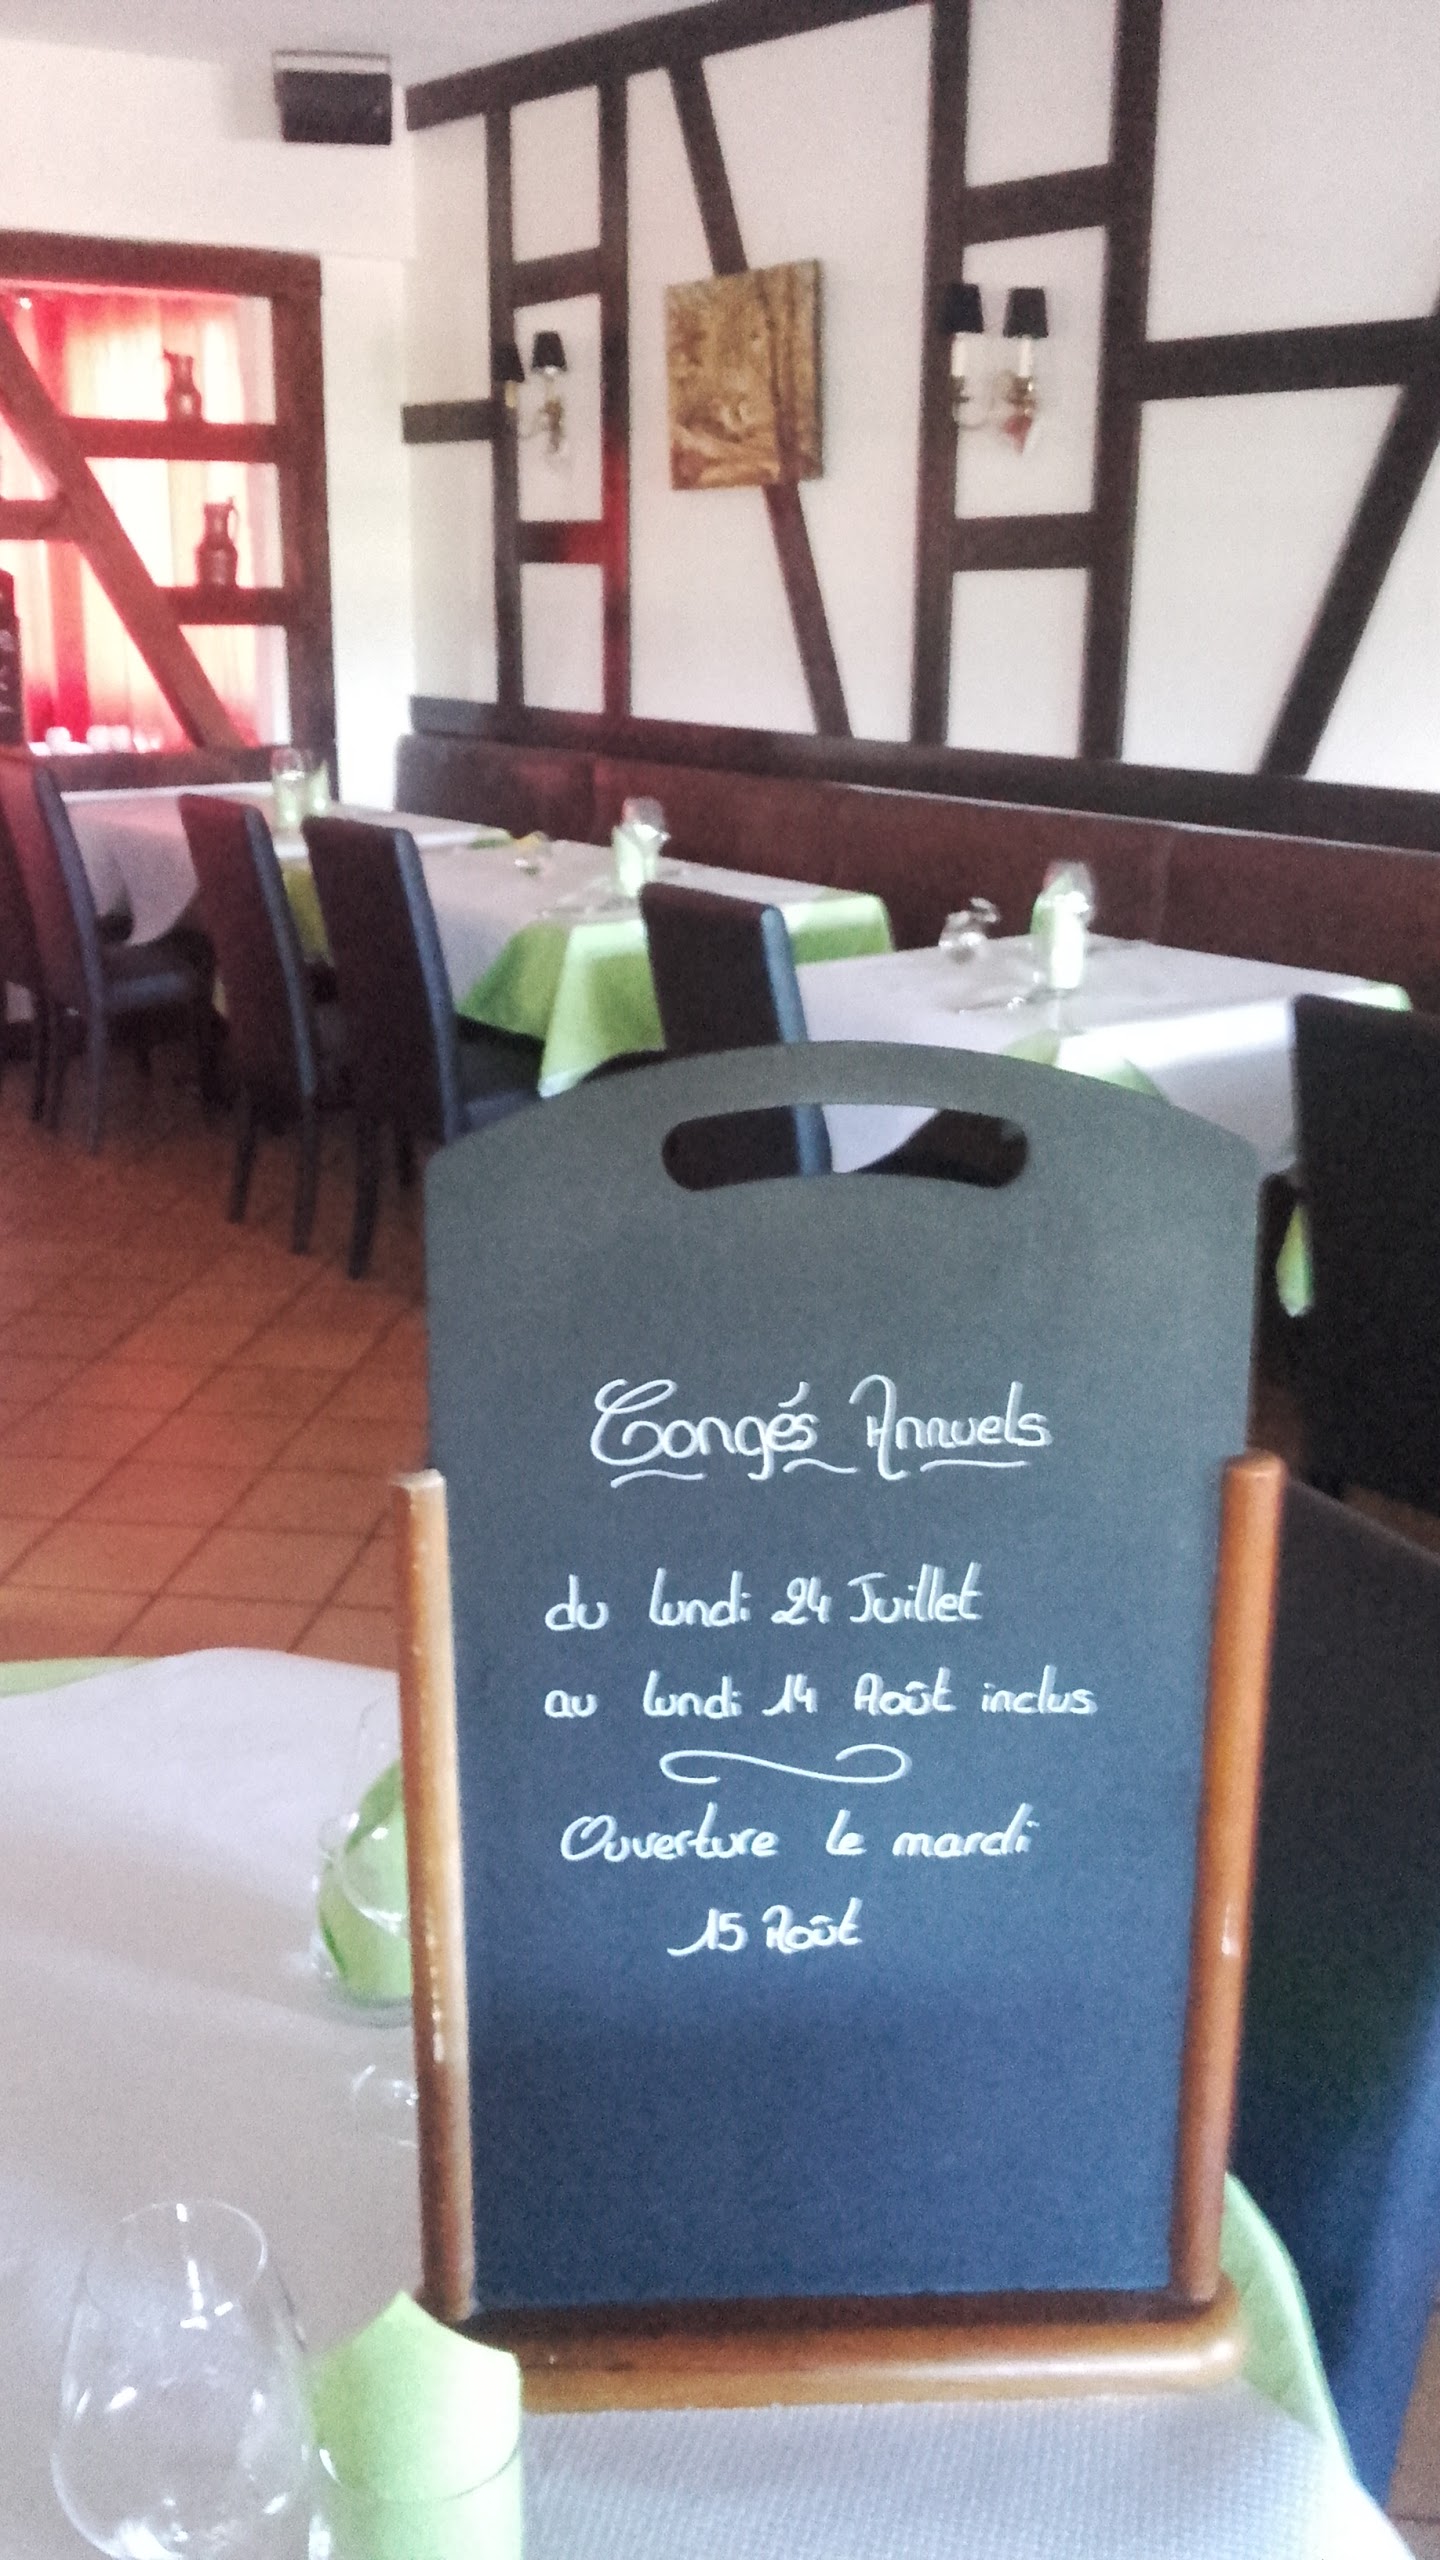 Congés Annuels
du lundi 24 Juillet
au lundi 14 Août inclus
Ouverture le mardi
15 Août